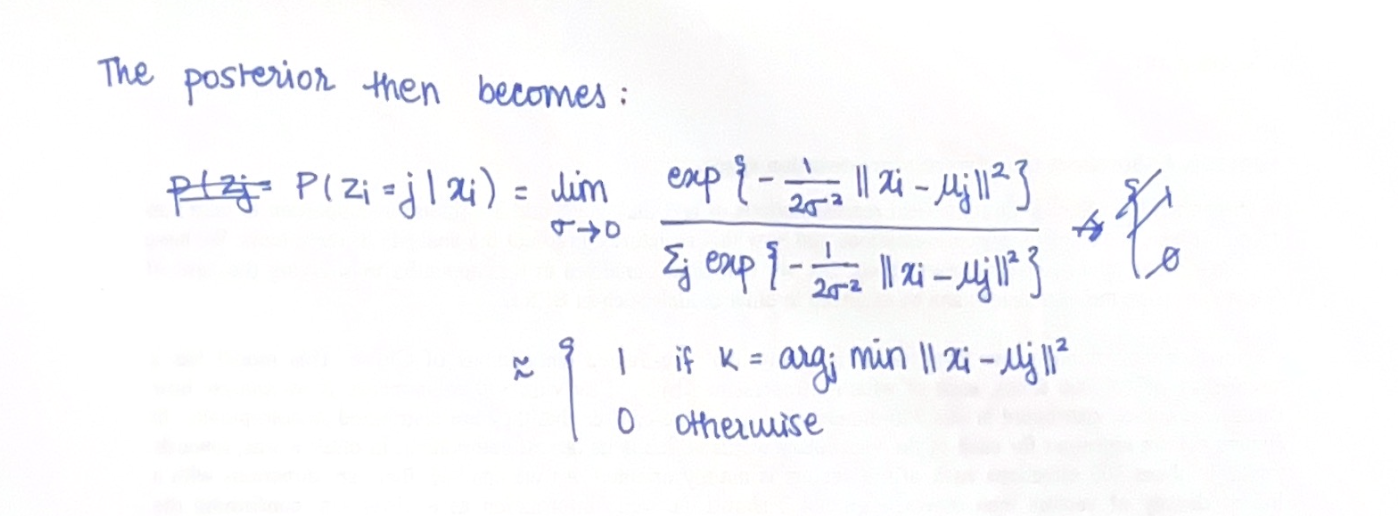 The posterior then becomes:
P(zi = j | xi) = lim σ→0 exp{-1/2σ² ||xi - μj||²} / Σj exp{-1/2σ² ||xi - μj||²}
≈ { 1 if k = argj min ||xi - μj||²
0 otherwise